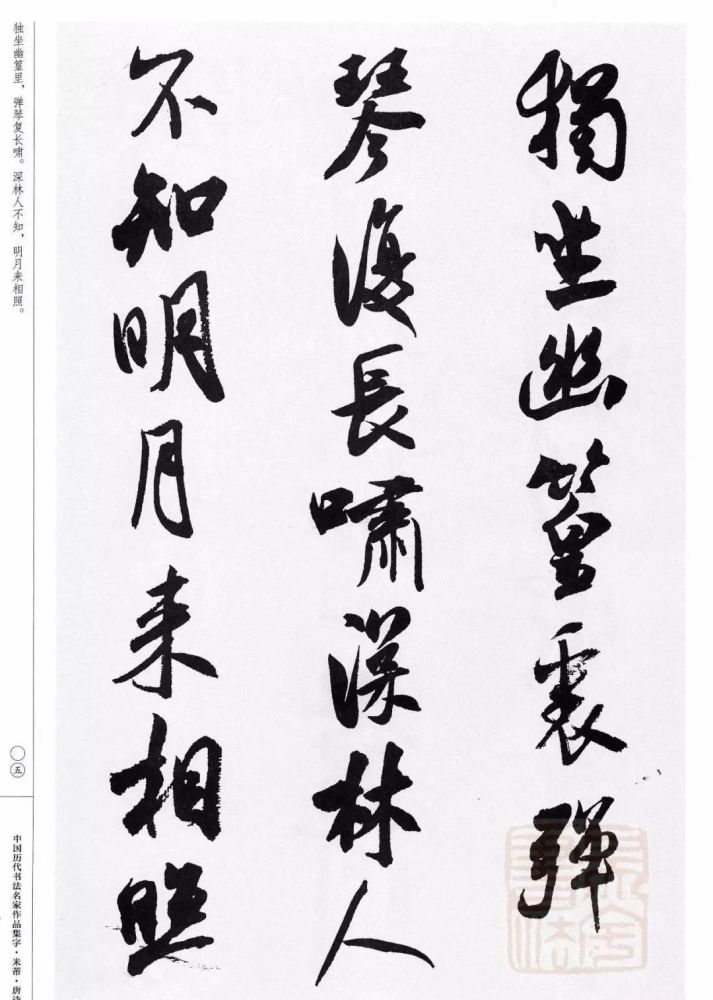 獨坐幽篁裏彈
琴復長嘯深林人
不知明月来相照
独坐幽篁里，弹琴复长啸。深林人不知，明月来相照。
〇五
中国历代书法名家作品集字·米芾·唐诗